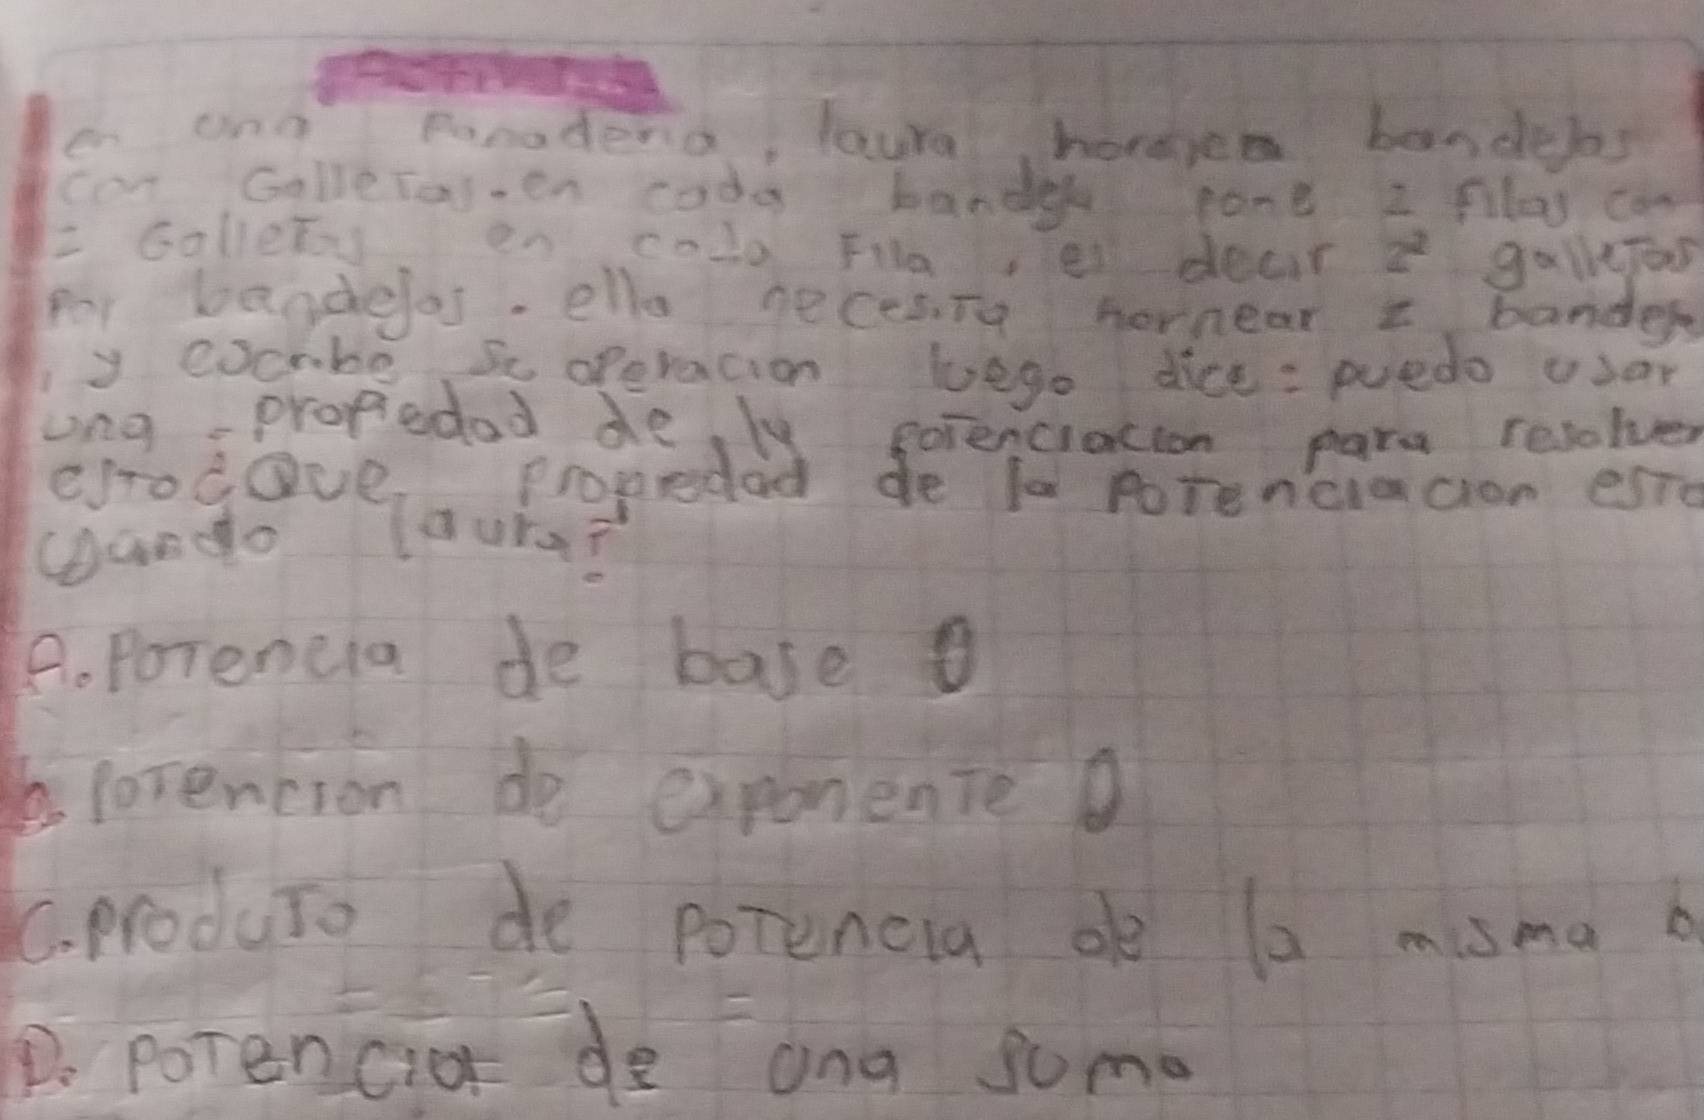 en una Panaderia, laura hornea bandejas
con Galletas. en cada bandeja pone 2 filas con
2 Galletas en cada Fila, es decir 2² galletas
por bandejas. ella necesita hornear 2 bandejas
, y escribe su operacion luego dice: puedo usar
una propiedad de la potenciacion para resolver
esto ¿Que propiedad de la Potenciacion esta
usando laura?
A. Potencia de base 0
b. Potencion de exponente 0
C. produto de Potencia de la misma b
D. Potencia de una suma